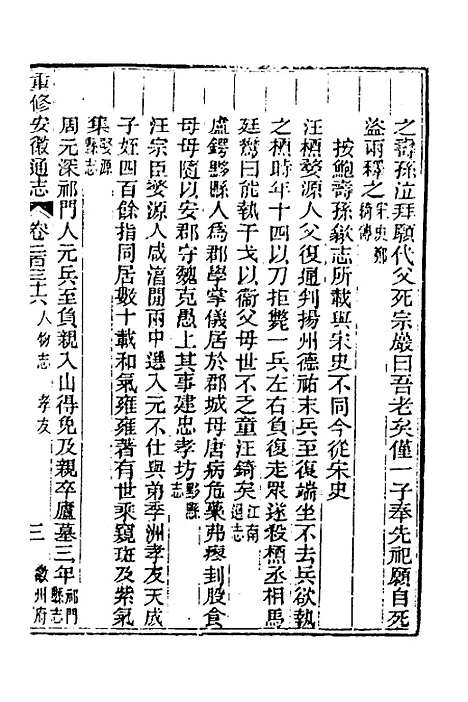 之壽孫泣拜願代父死宗巖曰吾老矣僅一子奉先祀願自死
盜兩釋之宋史鄭綺傳
按鮑壽孫歙志所載與宋史不同今從宋史
汪楨婺源人父復通判揚州德祐末兵至復端坐不去兵欲執
之楨時年十四以刀拒斃一兵左右負復走眾遂殺楨丞相馬
廷鸞曰能執干戈以衞父母世不乏童汪錡矣江南通志
盧鍔黟縣人爲郡學掌儀居於郡城母唐病危藥弗療刲股食
母母隨以安郡守魏克愚上其事建忠孝坊黟縣志
汪宗臣婺源人咸淯閒兩中選入元不仕與弟季洲孝友天成
子姪四百餘指同居數十載和氣雍雍著有世乘窺斑及紫氣
集婺源縣志
周元深祁門人元兵至負親入山得免及親卒廬墓三年祁門縣志
重修安徽通志 卷二百三十六 人物志 孝友 三 徽州府